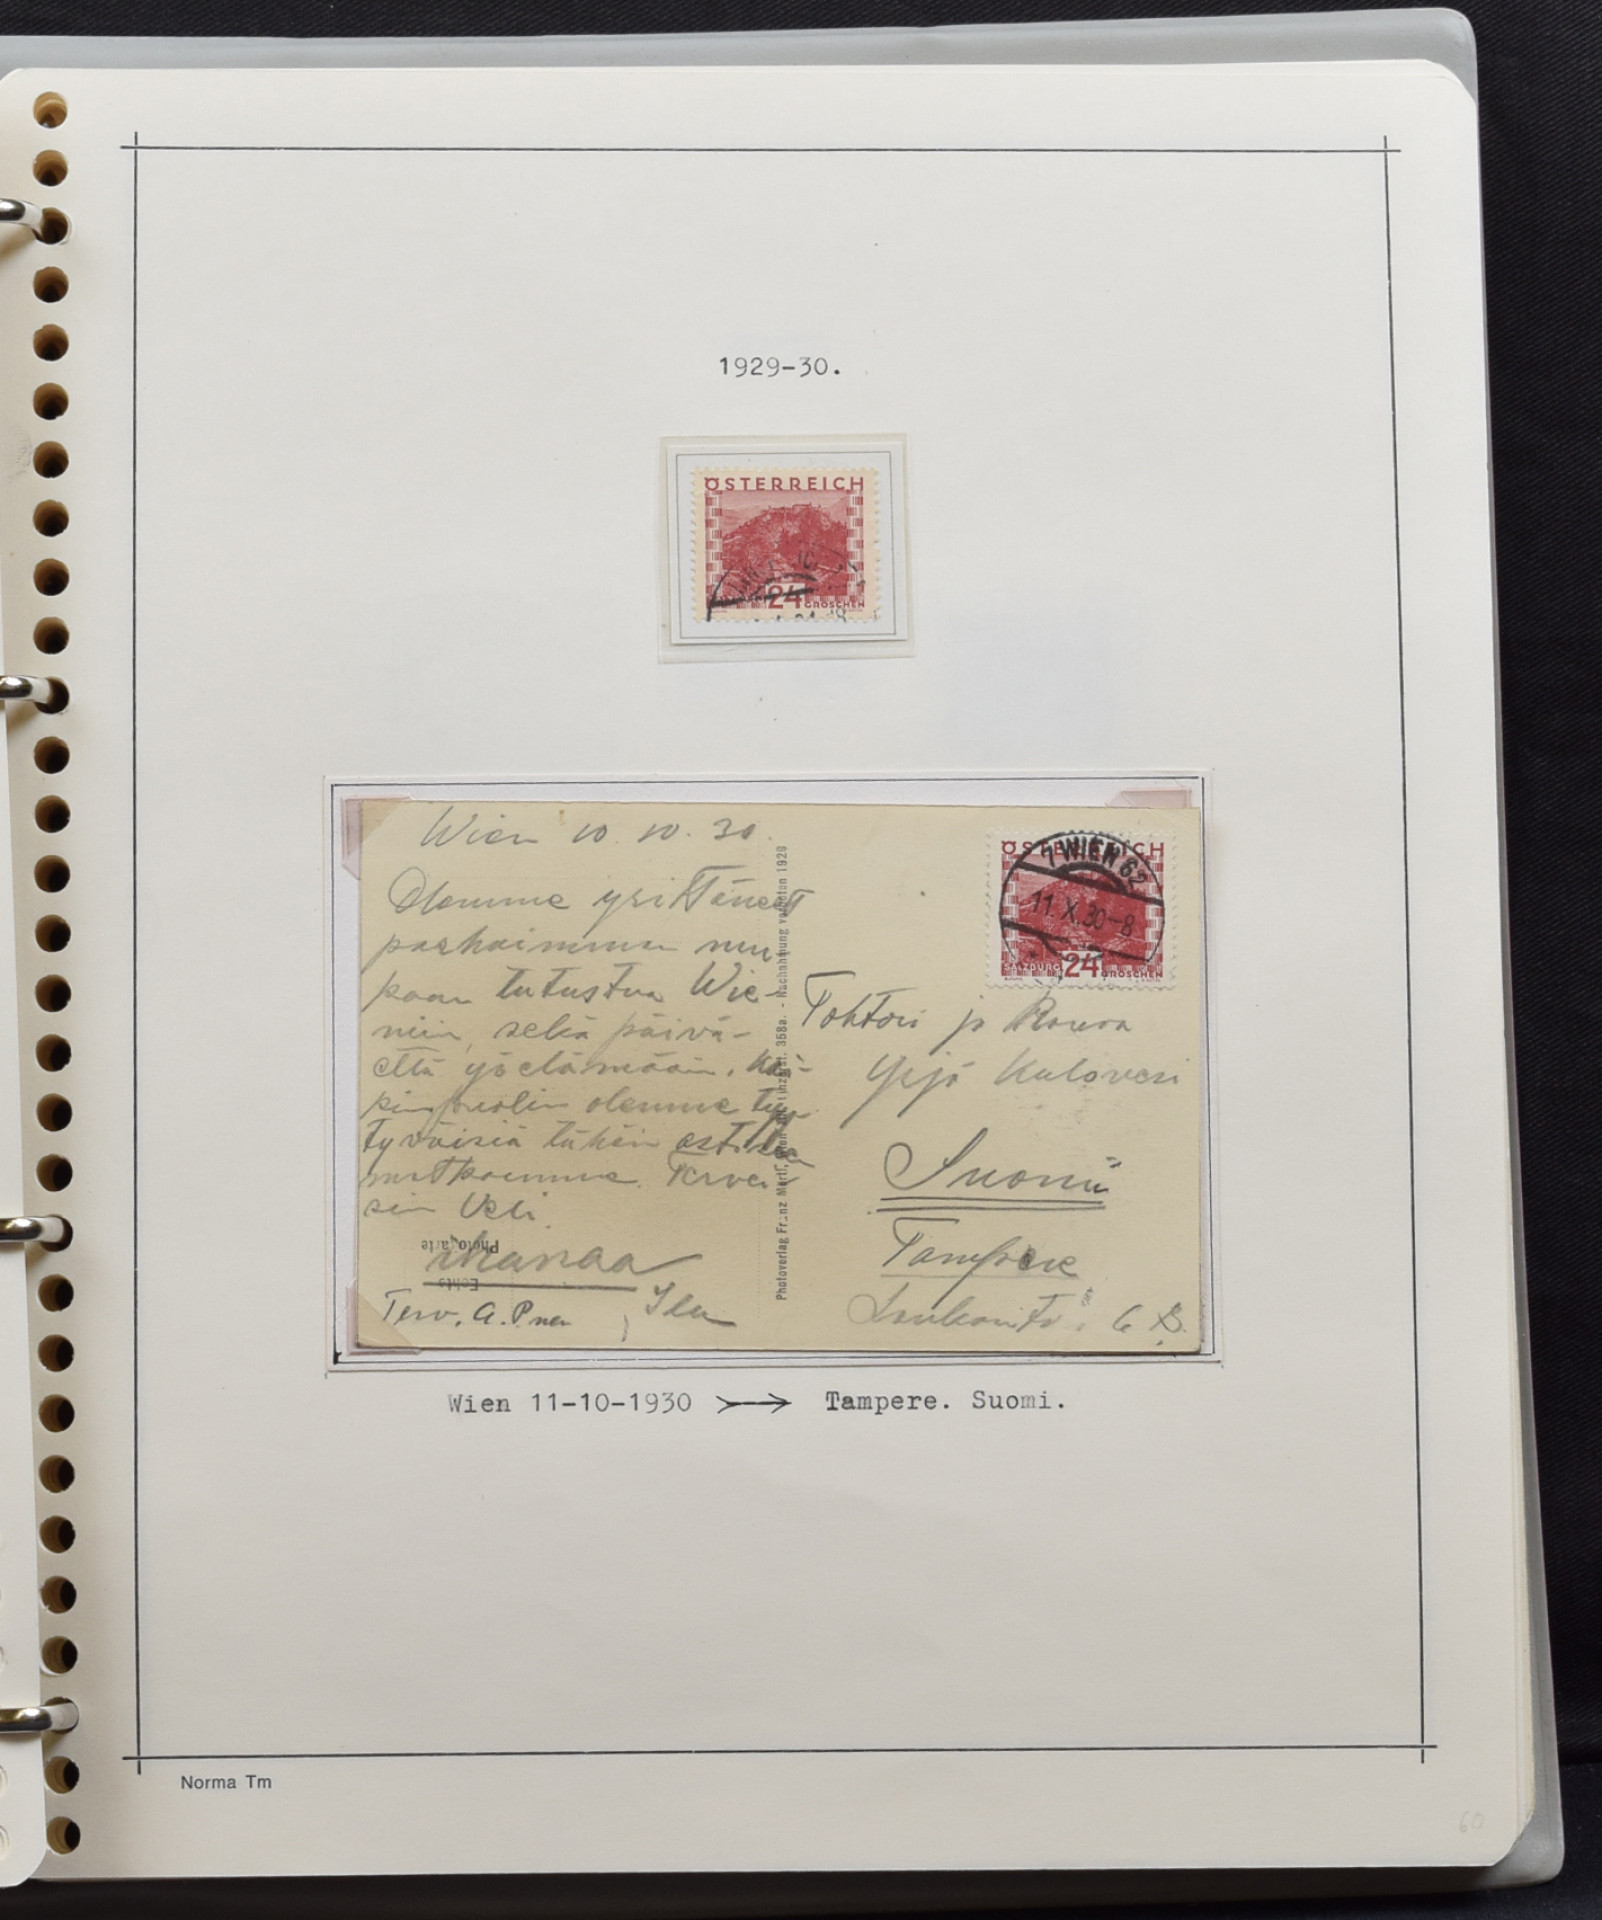 1929-30.
ÖSTERREICH
24 GROSCHEN
Wien 10.10.30.
Olemme yrittäneet
parhaimman mu-
kaan tutustua Wie-
niin, sekä päivä-
että yöelämään. Kai-
kinpuolin olemme tyy-
tyväisiä tähän astiseen
matkaamme. Tervei-
sin Veli
Photokarte
Echte
Terv. A. P:nen
Photoverlag Franz Mörtl, Wien 358a. - Nachahmung verboten 1929
ÖSTERREICH
1 WIEN 62
11.X.30-8
SALZBURG 24 GROSCHEN
Tohtori ja Rouva
Yrjö Kulovesi
Suomi
Tampere
6 B.
Wien 11-10-1930 Tampere. Suomi.
Norma Tm
60